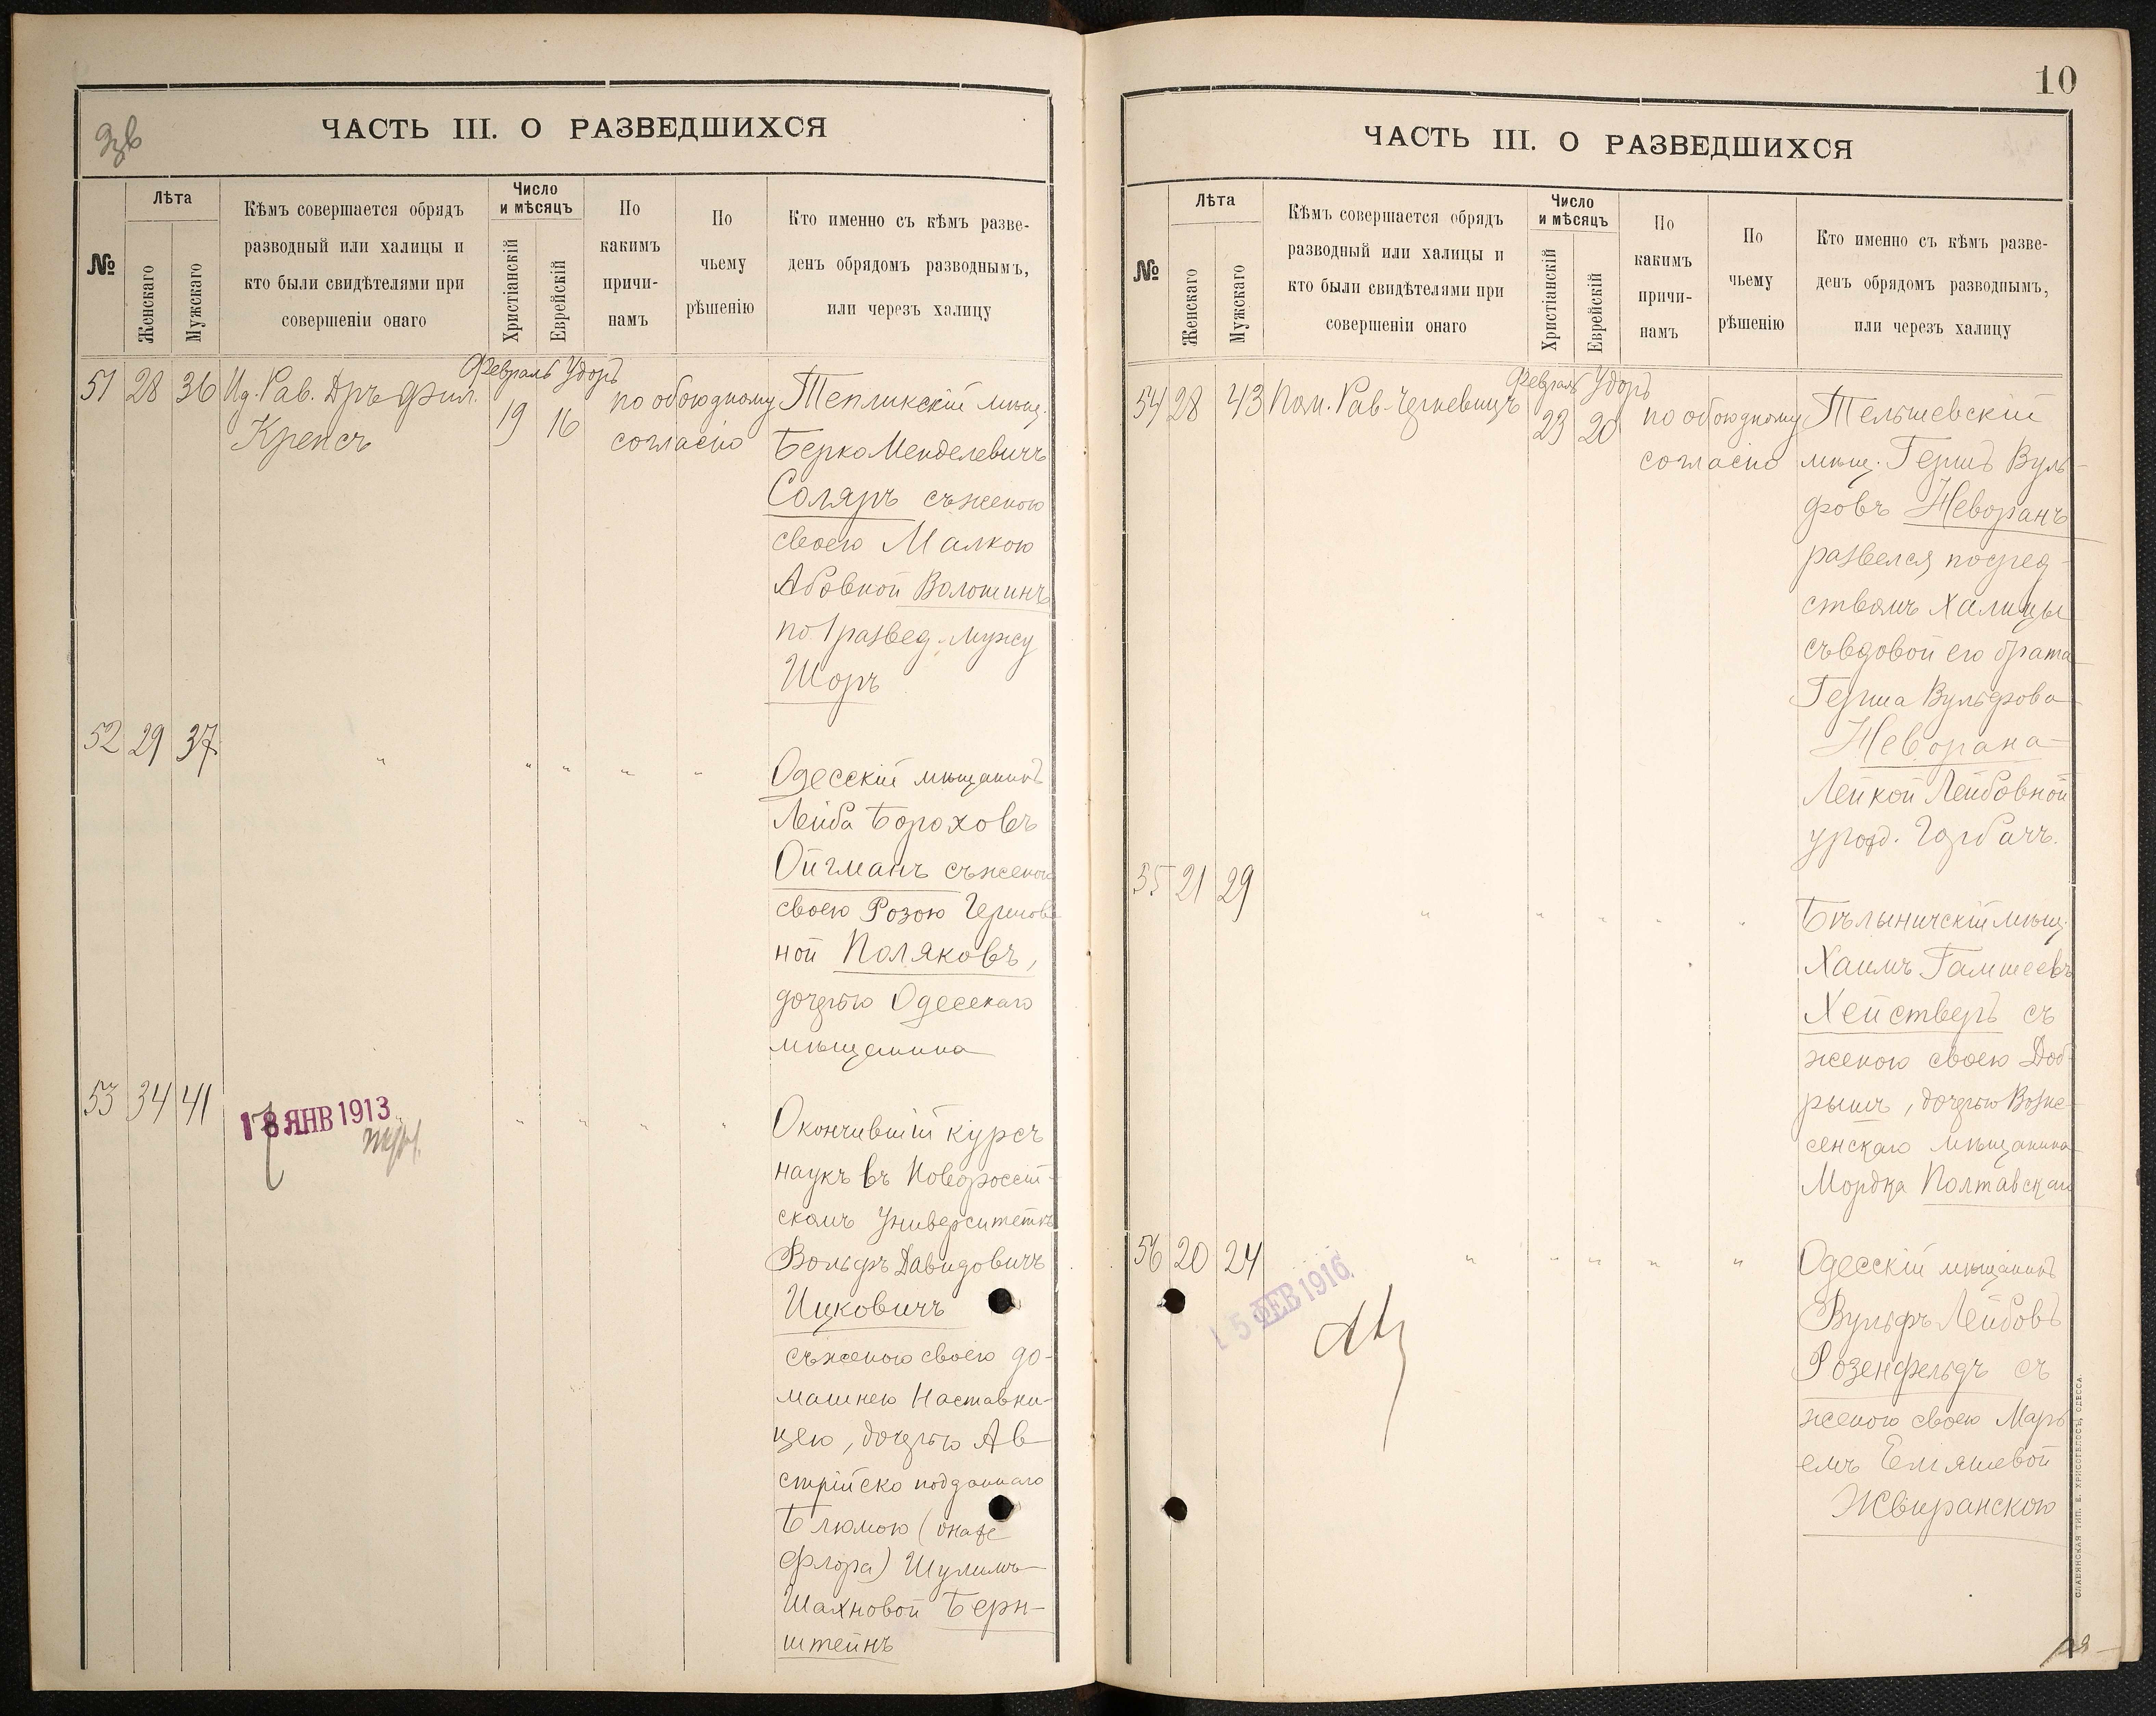 ЧАСТЬ III. О РАЗВЕДШИХСЯ
№
Лѣта
Женскаго
Мужскаго
Кѣмъ совершается обрядъ
разводный или халицы и
кто были свидѣтелями при
совершеніи онаго
Число
и мѣсяцъ
Христіанскій
Еврейскій
По
какимъ
причи-
намъ
По
чьему
рѣшенію
Кто именно съ кѣмъ разве-
денъ обрядомъ разводнымъ,
или черезъ халицу
51 28 36 Ид. Рав. Дръ Фил.
Крепсъ
Февраль Удоръ
19 16
по обоюдному
согласію
Тепликскій мѣщ.
Берко Менделевичъ
Соляръ съ женою
своею Малкою
Абовной Волошинъ
по 1 развед. мужу
Шоръ
52 29 37 " " " " "
Одесскій мѣщанинъ
Лейба Бороховъ
Ойгманъ съ женою
своею Розою Гершов
ной Поляковъ,
дочерью Одесскаго
мѣщанина
53 34 41 " " " "
18 ЯНВ 1913
Окончившій курсъ
наукъ въ Новороссій-
скомъ Университетѣ
Вольфъ Давидовичъ
Ицковичъ
съ женою своею до-
машнею Наставни-
цею, дочерью Ав
стрійско подданнаго
Блюмою (она же
Флора) Шулимъ-
Шахновой Берн-
штейнъ
10
ЧАСТЬ III. О РАЗВЕДШИХСЯ
№
Лѣта
Женскаго
Мужскаго
Кѣмъ совершается обрядъ
разводный или халицы и
кто были свидѣтелями при
совершеніи онаго
Число
и мѣсяцъ
Христіанскій
Еврейскій
По
какимъ
причи-
намъ
По
чьему
рѣшенію
Кто именно съ кѣмъ разве-
денъ обрядомъ разводнымъ,
или черезъ халицу
54 28 43 Пом. Рав. Черневицъ
Февраль Удоръ
23 20
по обоюдному
согласію
Тельшевскій
мѣщ. Гершъ Вуль-
фовъ Неворанъ
развелся посред-
ствомъ Халицы
съ вдовой его брата
Герша Вульфова
Неворана
Лейкой Лейбовной
урожд. Горбачъ.
55 21 29 " " " " "
Бѣлыничскій мѣщ.
Хаимъ Гамшеевъ
Хействеръ съ
женою своею Доб-
рышъ, дочерью Возне-
сенскаго мѣщанина
Мордка Полтавскаго
56 20 24 " " " " "
15 ФЕВ 1916
Одесскій мѣщанинъ
Вульфъ Лейбовъ
Розенфельдъ съ
женою своею Марь
емъ Ельяшевой
Жвиранскою
СЛАВЯНСКАЯ ТИП. Е. ХРИСОГЕЛОСЪ, ОДЕССА.